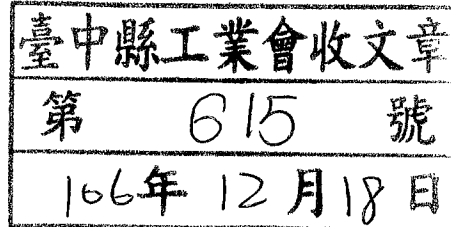 臺中縣工業會收文章
第 615 號
106年 12月18日